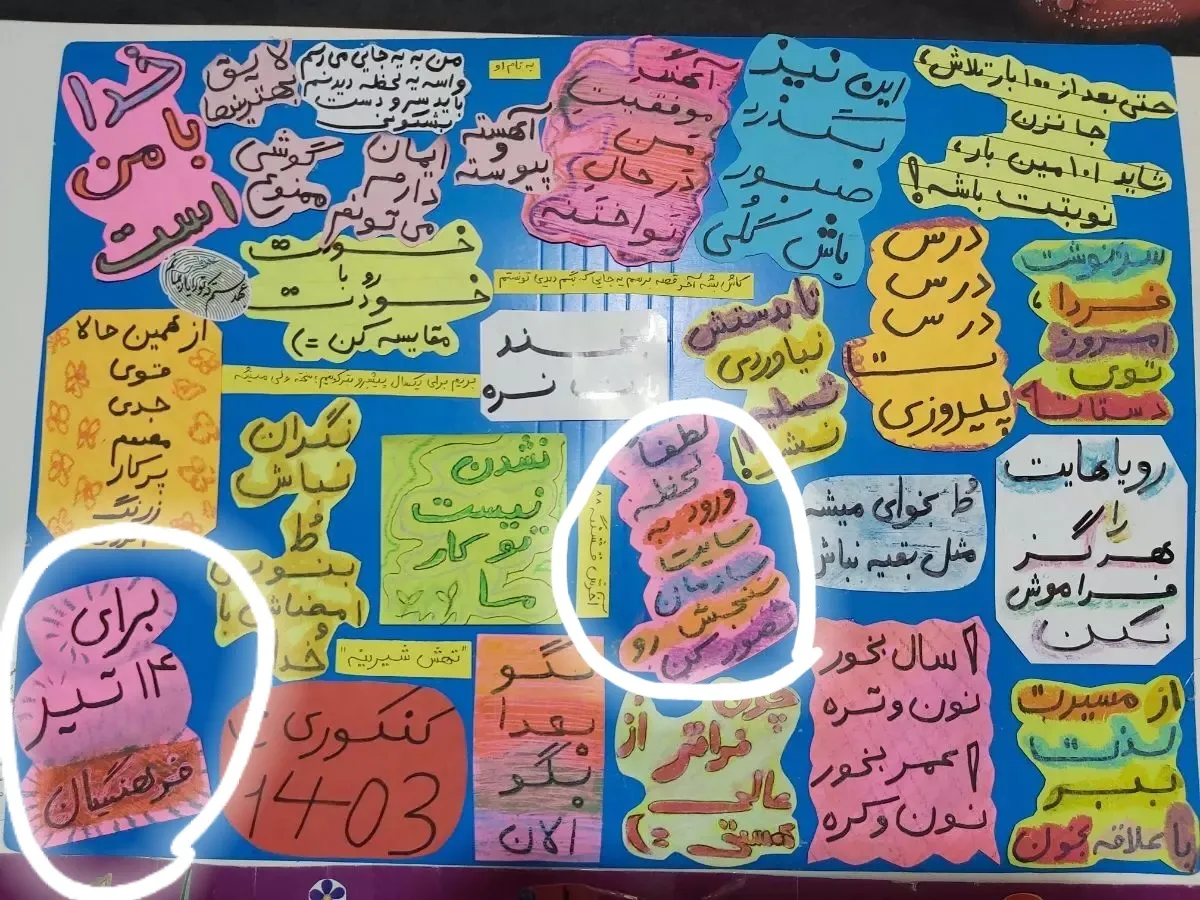 به نام او
حتی بعد از ۱۰۰ بار تلاش،
جا نزن
شاید ۱۰۱ مین بار،
نوبتت باشه!
این نیز
بگذرد
صبور
باش گلی
آهنگ
موفقیت
من
در حال
نواختنه
آهسته
و
پیوسته
من به یه جایی می‌رم
واسه یه لحظه دیدنم
باید سر و دست
بشکونن
لایق
بهترین‌ها
خدا
با من
است
گوشی
ممنوع
ایمان
دارم
می‌تونم
خودت
رو با
خودت
مقایسه کن =)
کاش بشه آخر قصه برسم یه جایی که بگم دیدی تونستم
درس
درس
درس
ست
پیروزی
سرنوشت
فردا،
امروز
توی
دستاته
تا بدستش
نیاوردی
تسلیم
نشو!!
بخند
نره
از همین حالا
قوی
جدی
مصمم
پرکار
زرنگ
نگران
نباش
تُ
بنویس
امضاش با
خدا
نشدن
نیست
تو کار
ما
آخرش قشنگه
لطفاً
لحظه
ورود به
سایت
سازمان
سنجش رو
تصور کن
تُ بخوای میشه
مثل بقیه نباش
رویاهایت
را
هرگز
فراموش
نکن
برای
۱۴ تیر
فرهنگیان
"تهش شیرینه"
کنکوری
1403
نگو
بعدا
بگو
الان
چون
فراتر از
عالی
هستی =)
۱ سال بخور
نون و تره
۱ عمر بخور
نون و کره
از مسیرت
لذت
ببر
با علاقه بخون